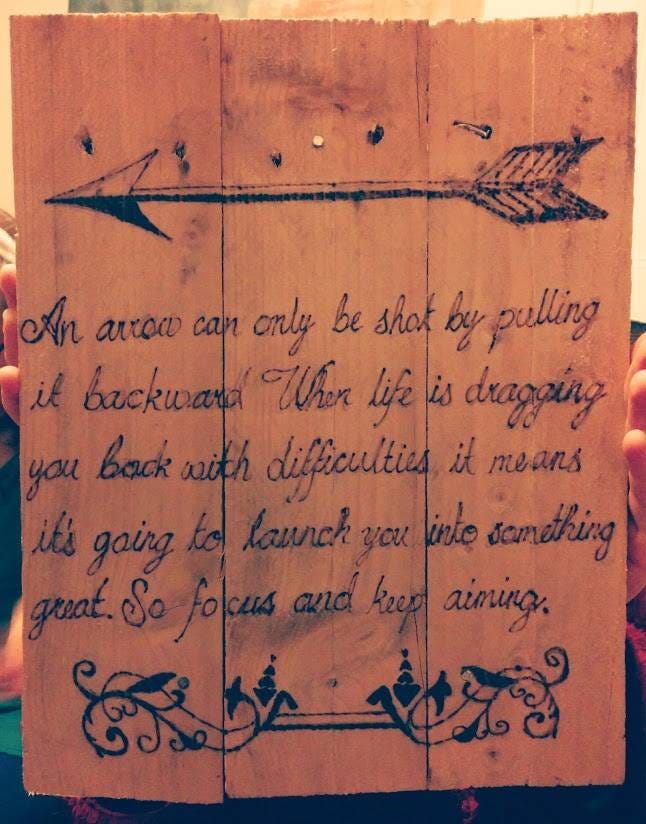 An arrow can only be shot by pulling
it backward When life is dragging
you back with difficulties, it means
it's going to launch you into something
great. So focus and keep aiming.